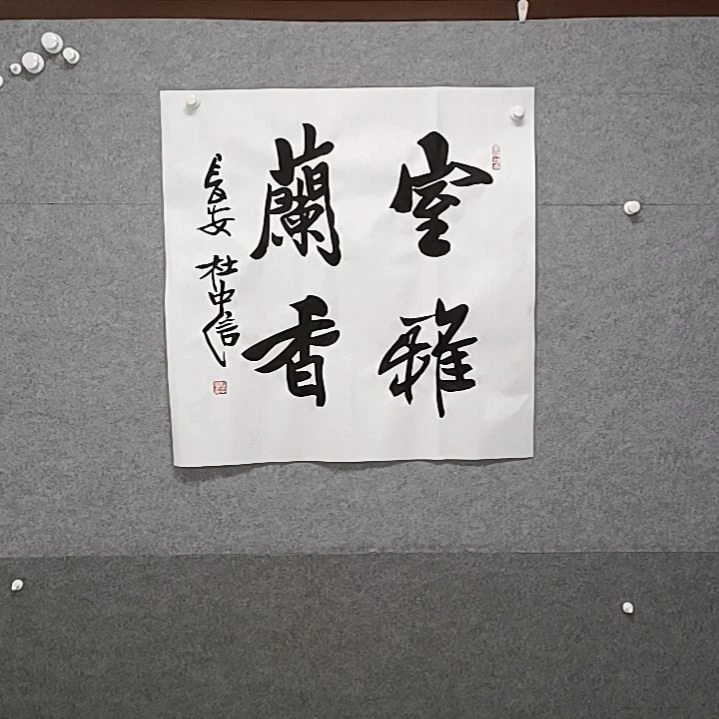 室雅
蘭香
長安 杜中信